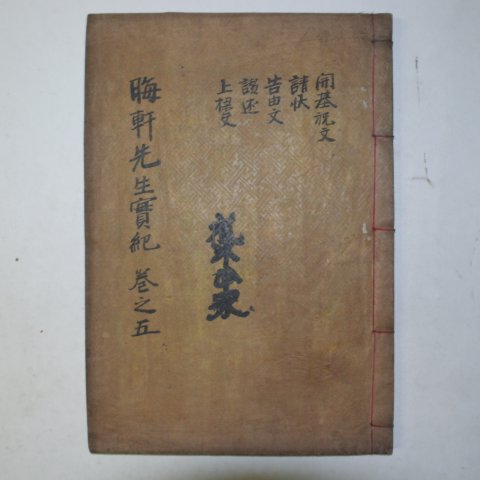 開基祝文
請狀
告由文
上樑文
晦軒先生實紀 卷之五